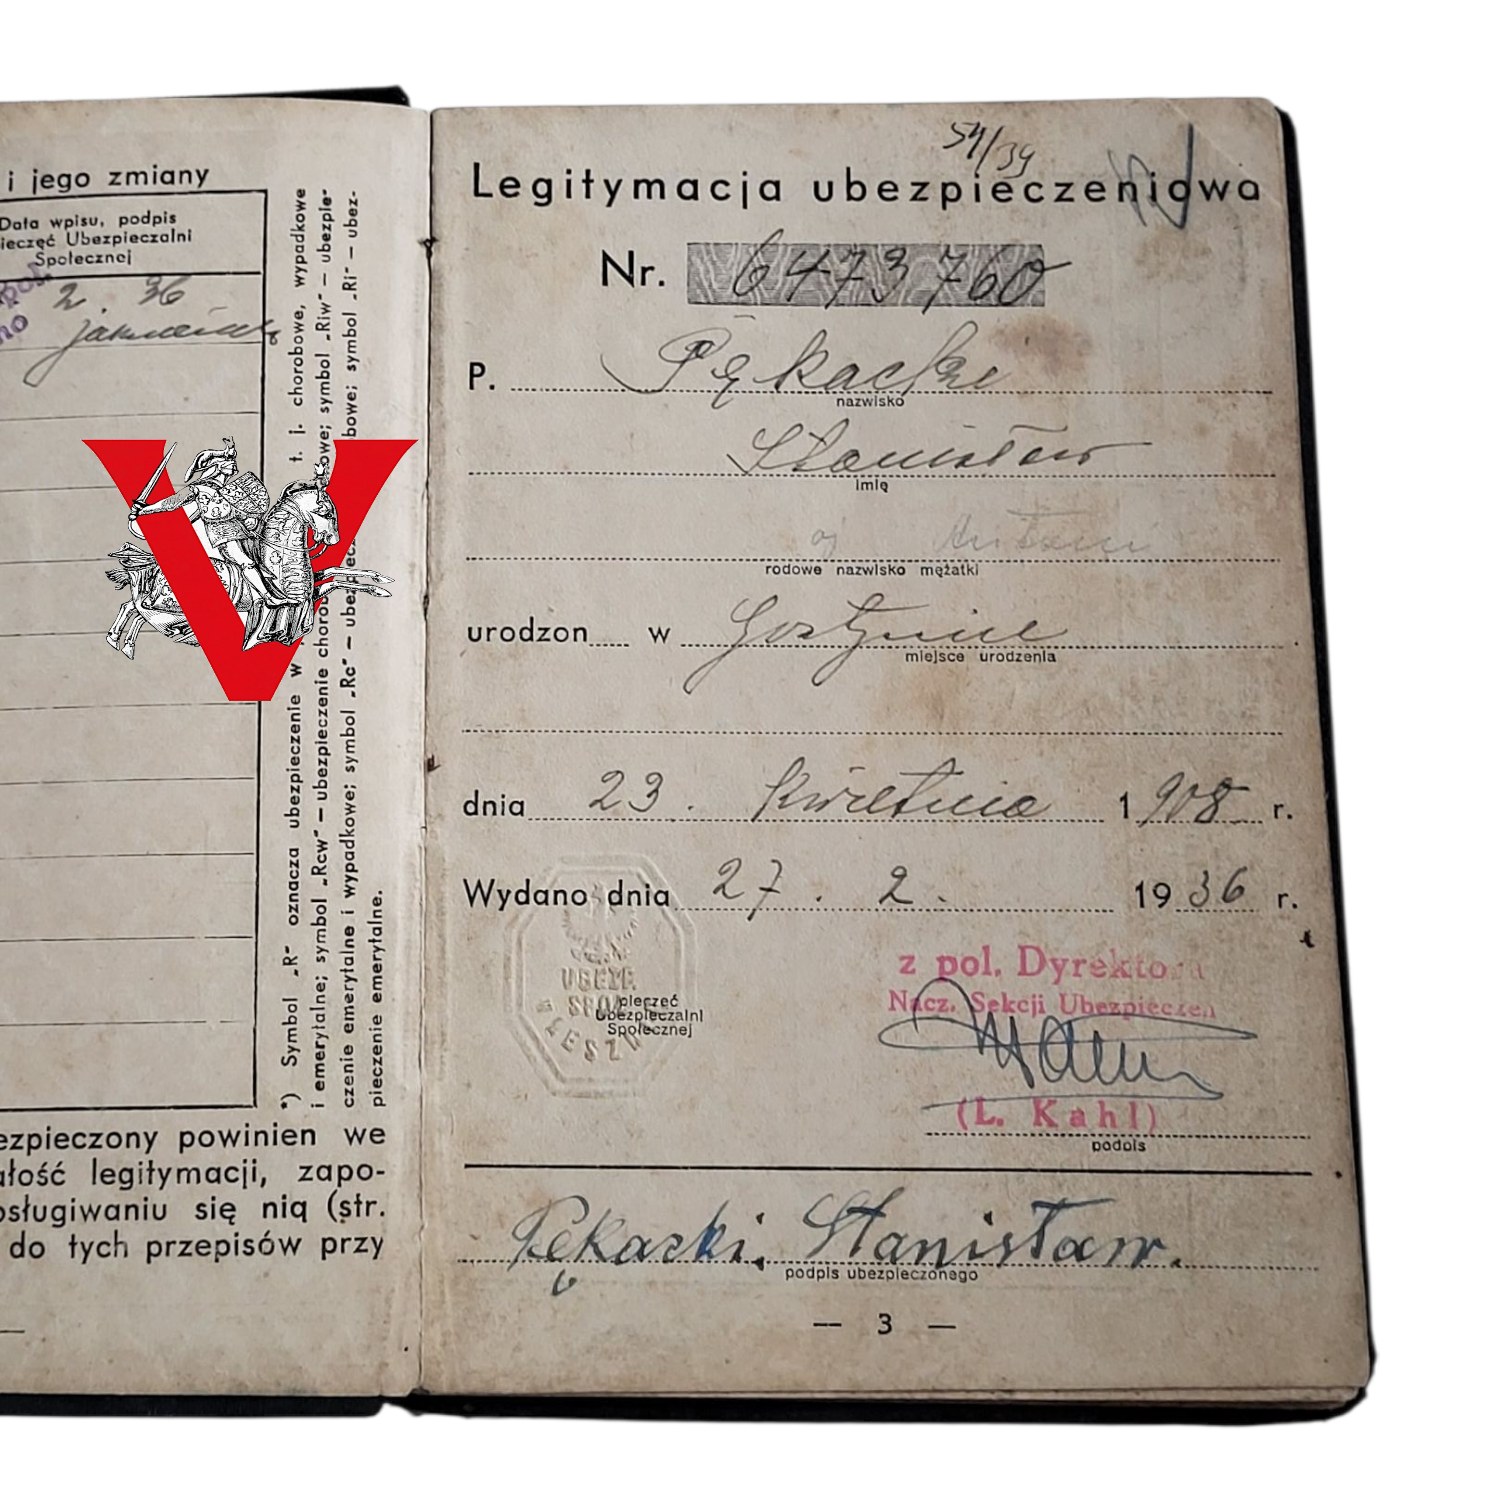 i jego zmiany
Data wpisu, podpis
ieczęć Ubezpieczalni
Społecznej
2. 36
*) Symbol „R” oznacza ubezpieczenie w t. j. chorobowe, wypadkowe
i emerytalne; symbol „Rcw” — ubezpieczenie chorob owe; symbol „Riw” — ubezpie-
czenie emerytalne i wypadkowe; symbol „Rc” — ubezpiecz bowe; symbol „Ri” — ubez-
pieczenie emerytalne.
ezpieczony powinien we
ałość legitymacji, zapo-
osługiwaniu się nią (str.
do tych przepisów przy
V
54/39
Legitymacja ubezpieczeniowa
Nr. 6473760
P. Pękacki
nazwisko
Stanisław
imię
Antoni
rodowe nazwisko mężatki
urodzon w Gostyniu
miejsce urodzenia
dnia 23. Kwietnia 1908 r.
Wydano dnia 27. 2. 1936 r.
UBEZP.
SPOŁ.
LESZN
pieczęć
Ubezpieczalni
Społecznej
z pol. Dyrektora
Nacz. Sekcji Ubezpieczeń
(L. Kahl)
podpis
Pękaski Stanisław.
podpis ubezpieczonego
— 3 —